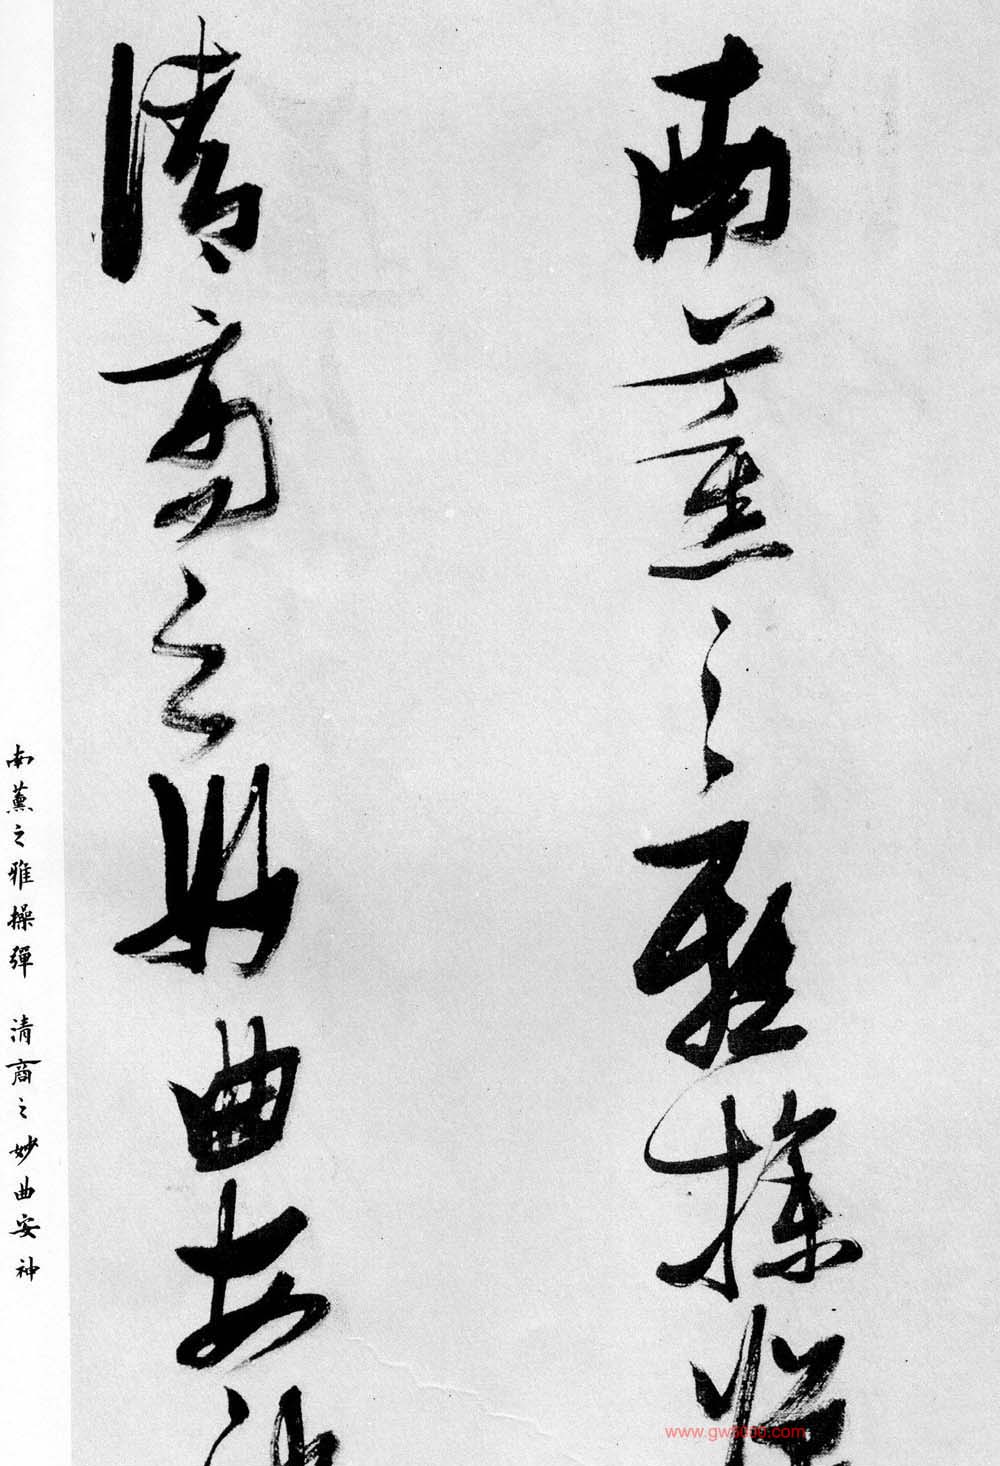 南薰之雅操彈
清商之妙曲安神
南薰之雅操彈 清商之妙曲安神
www.gw8000.com